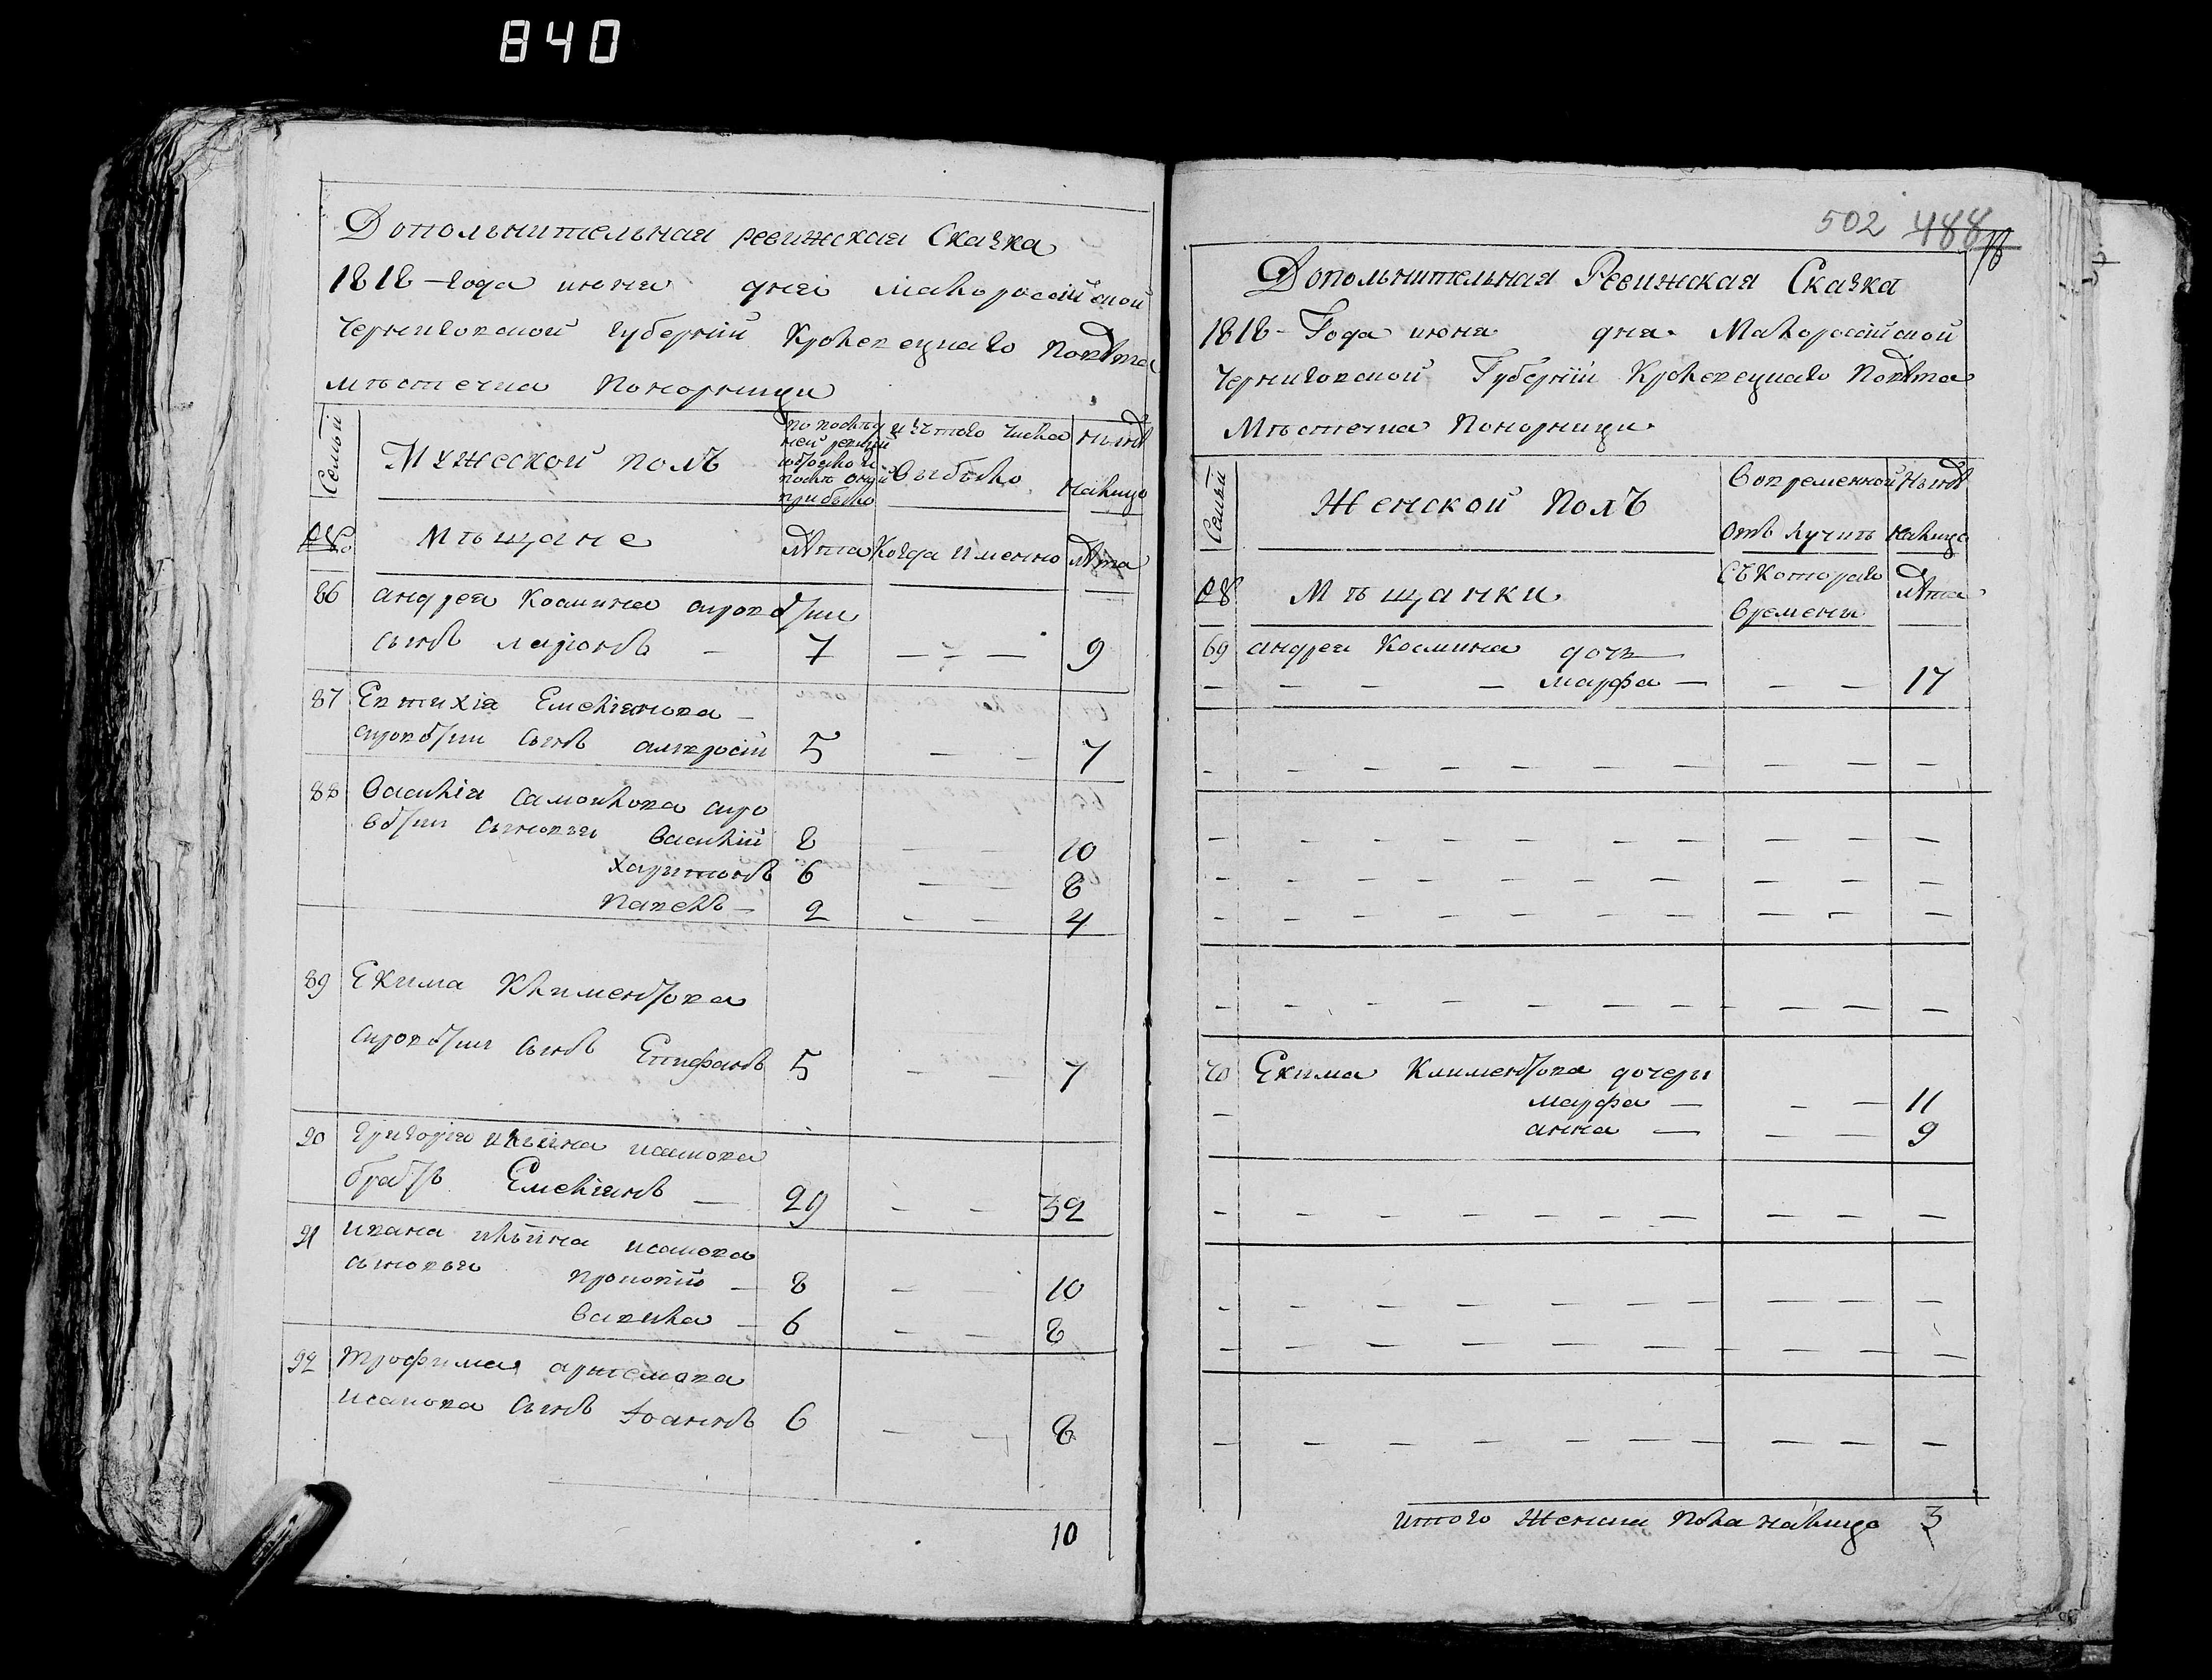 840
Допольнительная ревижская Сказка
1818-года июня дня малороссийской
Черниговской губерний Кролевецкаго Повѣта
мѣстечка Понорницы
Семьи
Мужеской полъ
по послѣд
ней ревизий
состояло и
послѣ оной
прибыло
изъ того числа
выбыло
нынѣ
налицо
№
Мѣщане
Лѣта
Когда именно
лѣта
86 андрея Космина
сынъ ларионъ – 7 — — — 9
87 Евтихія Емельянова –
сынъ амвросій 5 — — 7
88 Василія Самойлова
сыновья василій 8 — — 10
харитонъ 6 — — 8
павелъ – 2 — — 4
89 Екима Климентова
сынъ Епифанъ 5 — — 7
90 григорія ильина исакова
братъ Емельянъ — 29 — — 32
91 ивана ильина исакова
сыновья прокопій – 8 — — 10
вавила – 6 — — 8
92 трофима артемова
исакова сынъ Іоаннъ 6 — — 8
10
502 488
Допольнительная Ревижская Сказка
1818-Года июня дня Малороссийской
Черниговской Губерний Кролевецкаго Повѣта
Мѣстечка Понорницы
Семьи
Женской Полъ
Вовременной
отлучкѣ
Нынѣ
налицо
№
Мѣщанки
Съ Котораго
Времены
лѣта
69 андрея Космина дочь
марфа — — — 17
70 Екима Климентова дочери
марфа — — — 11
анна — — — 9
итого Женска пола налицо 3